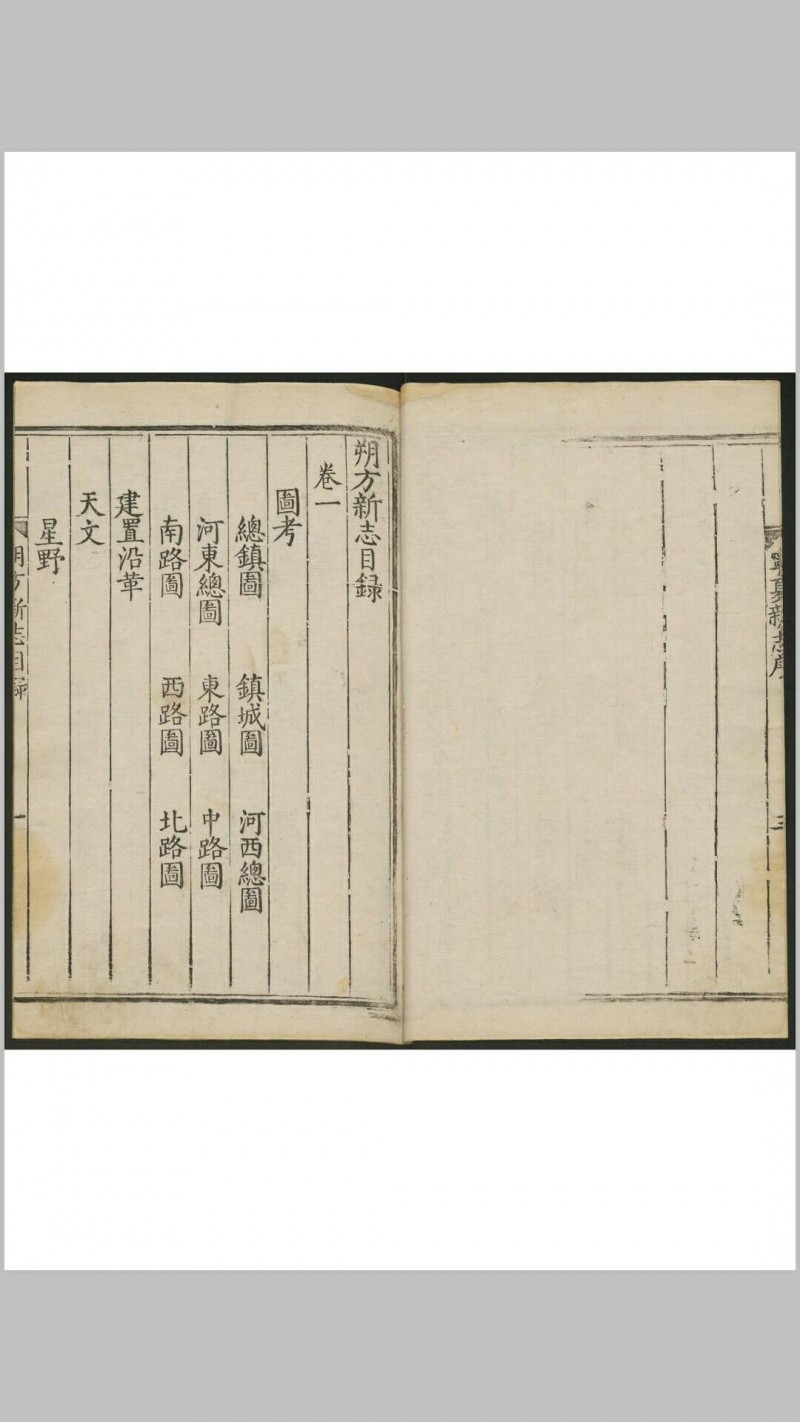 寧夏新志序
三
朔方新志目録
卷一
圖考
總鎮圖 鎮城圖 河西總圖
河東總圖 東路圖 中路圖
南路圖 西路圖 北路圖
建置沿革
天文
星野
朔方新志目録
一